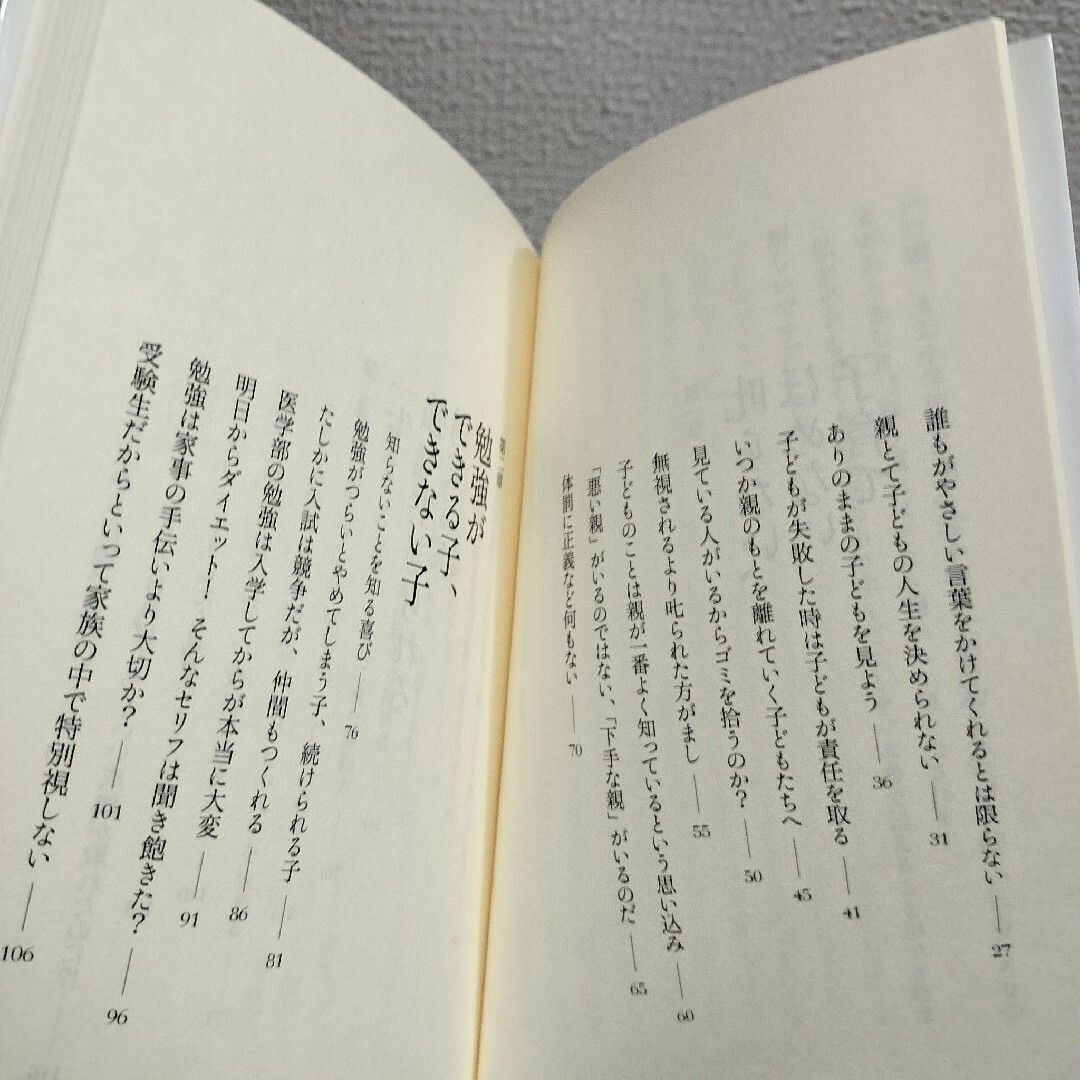 誰もがやさしい言葉をかけてくれるとは限らない――27
親とて子どもの人生を決められない――31
ありのままの子どもを見よう――36
子どもが失敗した時は子どもが責任を取る――41
いつか親のもとを離れていく子どもたちへ――45
見ている人がいるからゴミを拾うのか?――50
無視されるより叱られた方がまし――55
子どものことは親が一番よく知っているという思い込み――60
「悪い親」がいるのではない、「下手な親」がいるのだ――65
体罰に正義など何もない――70
第二章
勉強が
できる子、
できない子
知らないことを知る喜び――76
勉強がつらいとやめてしまう子、続けられる子――81
たしかに入試は競争だが、仲間もつくれる――86
医学部の勉強は入学してからが本当に大変――91
明日からダイエット! そんなセリフは聞き飽きた?――96
勉強は家事の手伝いより大切か?――101
受験生だからといって家族の中で特別視しない――106